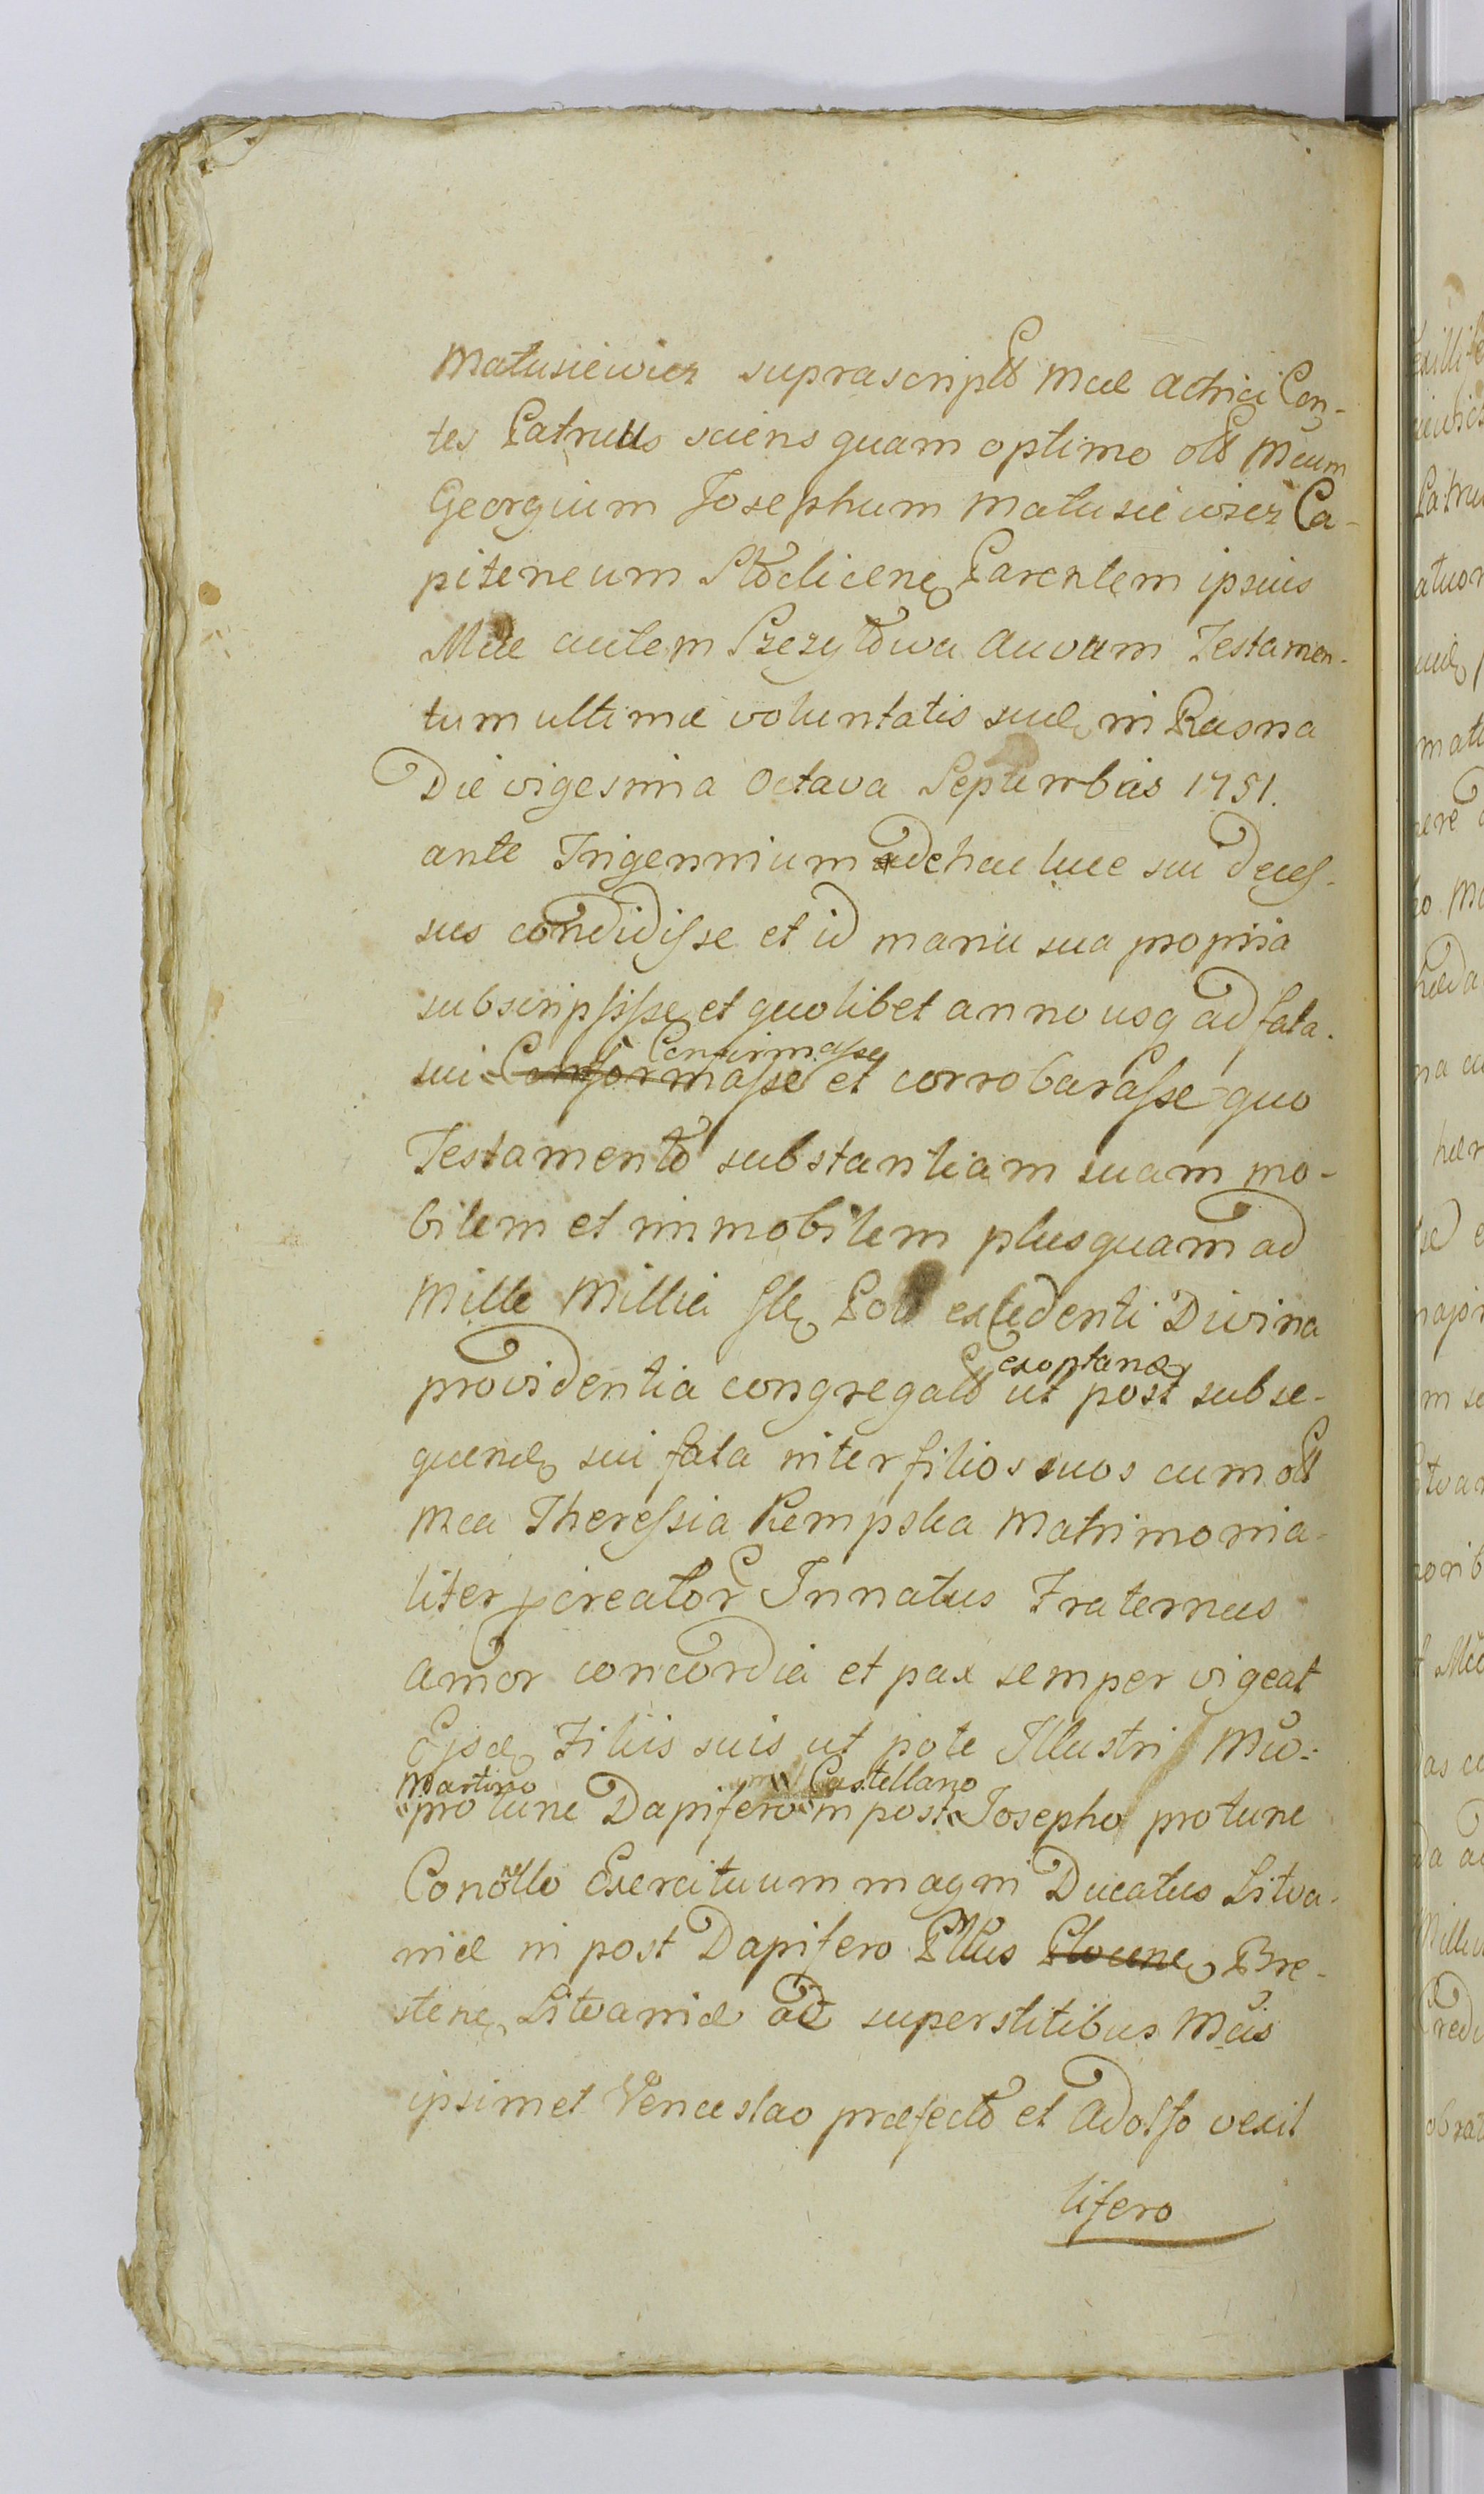 Matusiewicz suprascripto Mcae Actrici Con-
tes Patruus sciens quam optime olt Mcum
Georgium Josephum Matusiewicz Ca-
piteneum Stoklicen Parentem ipsius
Mcae autem Przezytowa Auvum Testamen-
tum ultimae voluntatis suae in Rasna
Die vigesima octava Septembris 1751.
ante Trigennium ad hac luce sui deces-
sus condidisse et id manu sua propria
subscripsisse et quolibet anno usq ad fata.
Confirmasse
sui Conformasse et corroborasse quo
Testamento substantiam suam mo-
bilem et immobilem plusquam ad
Mille Millia fle Pol excedenti Divina
exoptando
providentia congregato ut post subse-
quend sui fata inter filios suos cum olt
Mca Theressia Kempska Matrimonia-
liter pcreator Innatus Fraternus
Amor concordia et pax semper vigeat
Ejsd Filiis suis ut pote Illustri Mco:
Martino Castellano
pro tunc Dapifero in post Josepho protunc
Conollo Exercituum magni Ducatus Litva-
niae in post Dapifero Plttus Plocene Bre-
stene Litvaniae ac superstitibus Mcis
ipsimet Venceslao praefecto et Adolfo vexil
lifero